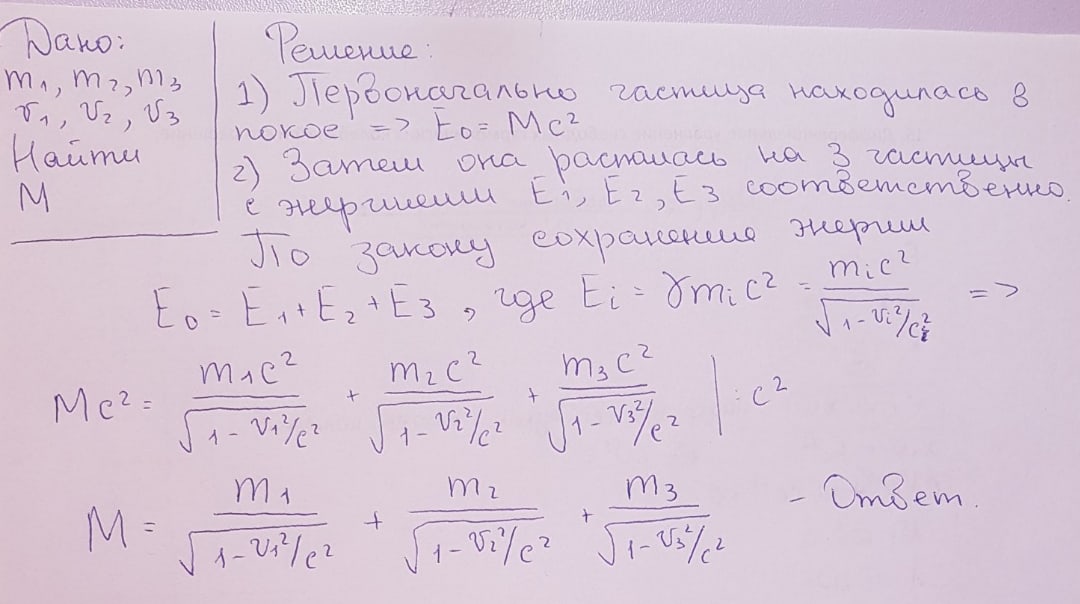 Дано:
m₁, m₂, m₃
v₁, v₂, v₃
Найти
M
Решение:
1) Первоначально частица находилась в
покое => E₀ = Mc²
2) Затем она распалась на 3 частицы
с энергиями E₁, E₂, E₃ соответственно.
По закону сохранения энергии
E₀ = E₁ + E₂ + E₃, где Eᵢ = γmᵢc² = mᵢc²/√(1 - vᵢ²/c²) =>
Mc² = m₁c²/√(1 - v₁²/c²) + m₂c²/√(1 - v₂²/c²) + m₃c²/√(1 - v₃²/c²) | : c²
M = m₁/√(1 - v₁²/c²) + m₂/√(1 - v₂²/c²) + m₃/√(1 - v₃²/c²) - Ответ.